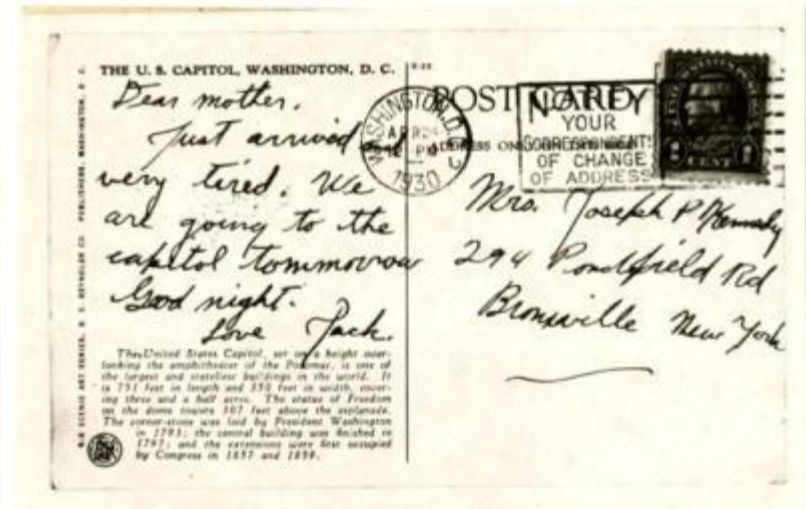 THE U. S. CAPITOL, WASHINGTON, D. C.
Dear mother.
Just arrived
very tired. We
are going to the
capitol tommorow
Good night.
Love Jack.
The United States Capitol, set on a height over-
looking the amphitheater of the Potomac, is one of
the largest and stateliest buildings in the world. It
is 751 feet in length and 350 feet in width, cover-
ing three and a half acres. The statue of Freedom
on the dome towers 307 feet above the esplanade.
The corner-stone was laid by President Washington
in 1793; the central building was finished in
1797; and the extensions were first occupied
by Congress in 1857 and 1859.
POST CARD
ADDRESS ON
WASHINGTON, D.C.
APR 24
PM
1930
NOTIFY
YOUR
CORRESPONDENTS
OF CHANGE
OF ADDRESS
1 CENT 1
Mrs. Joseph P Kennedy
294 Pondfield Rd
Bronxville New York